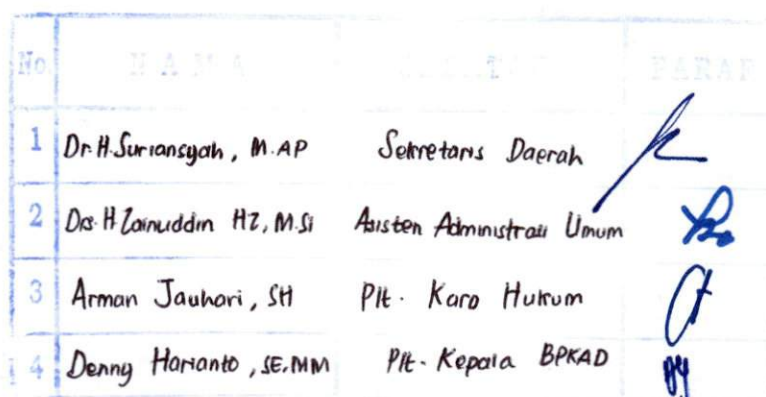 No. NAMA JABATAN PARAF
1 Dr. H. Suriansyah, M.AP Sekretaris Daerah
2 Drs. H Zainuddin HZ, M.Si Asisten Administrasi Umum
3 Arman Jauhari, SH Plt. Karo Hukum
4 Denny Harianto, SE, MM Plt. Kepala BPKAD